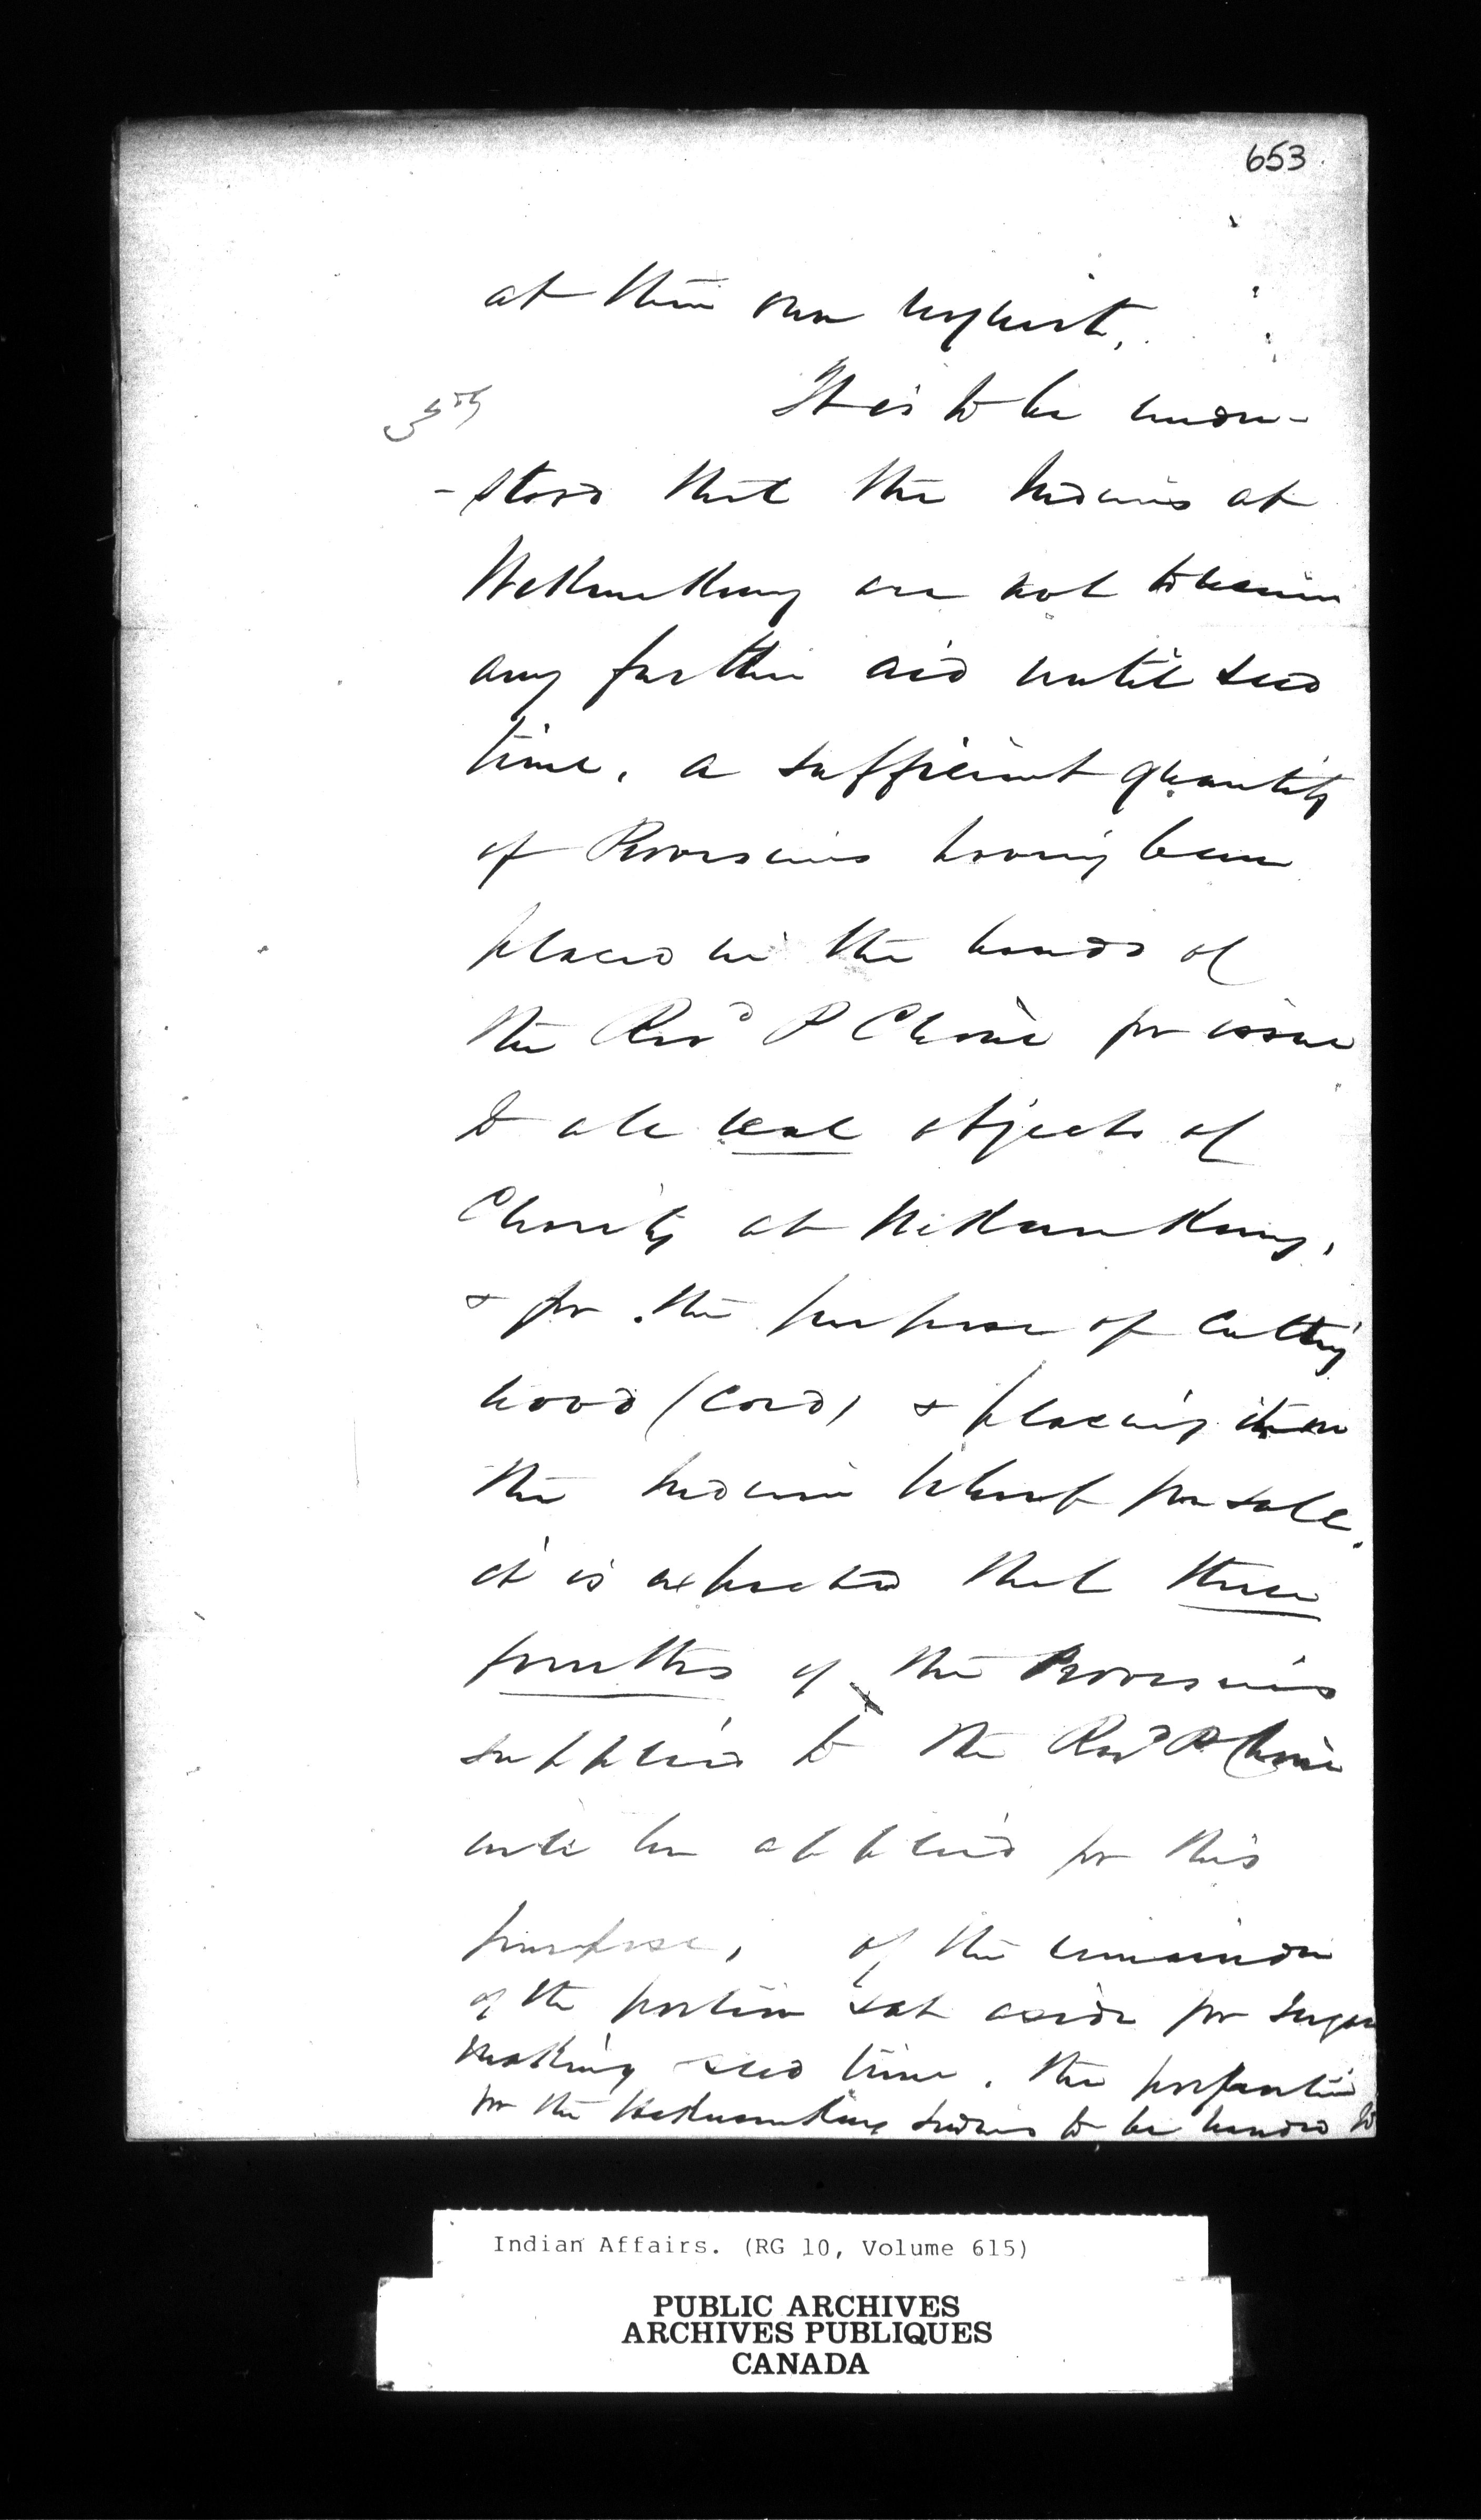 653
at their own request.
5th It is to be under-
-stood that the Indians at
WeKwemKong are not to receive
any further aid until seed
time, a sufficient quantity
of Provisions having been
placed in the hands of
the Revd P Choné for issue
to all real objects of
Charity at WeKwemKong,
& for the purpose of Cutting
wood (Cord) & placing it on
the Indian Wharf for sale.
it is expected that three
fourths of the Provisions
supplied to the Revd P Choné
will be applied for this
purpose, of the remainder
of the portion set aside for sugar
making seed time, the proportion
for the WeKwemKong Indians to be handed to
Indian Affairs. (RG 10, Volume 615)
PUBLIC ARCHIVES
ARCHIVES PUBLIQUES
CANADA